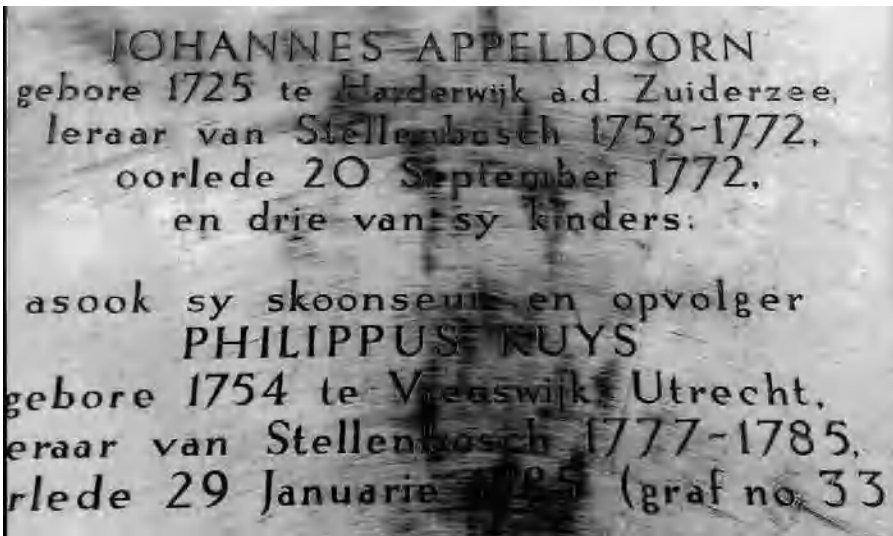 JOHANNES APPELDOORN
gebore 1725 te Harderwijk a.d. Zuiderzee,
leraar van Stellenbosch 1753-1772,
oorlede 20 September 1772,
en drie van sy kinders:
asook sy skoonseun en opvolger
PHILIPPUS KUYS
gebore 1754 te Vreeswijk, Utrecht,
eraar van Stellenbosch 1777-1785,
rlede 29 Januarie 1785 (graf no. 33